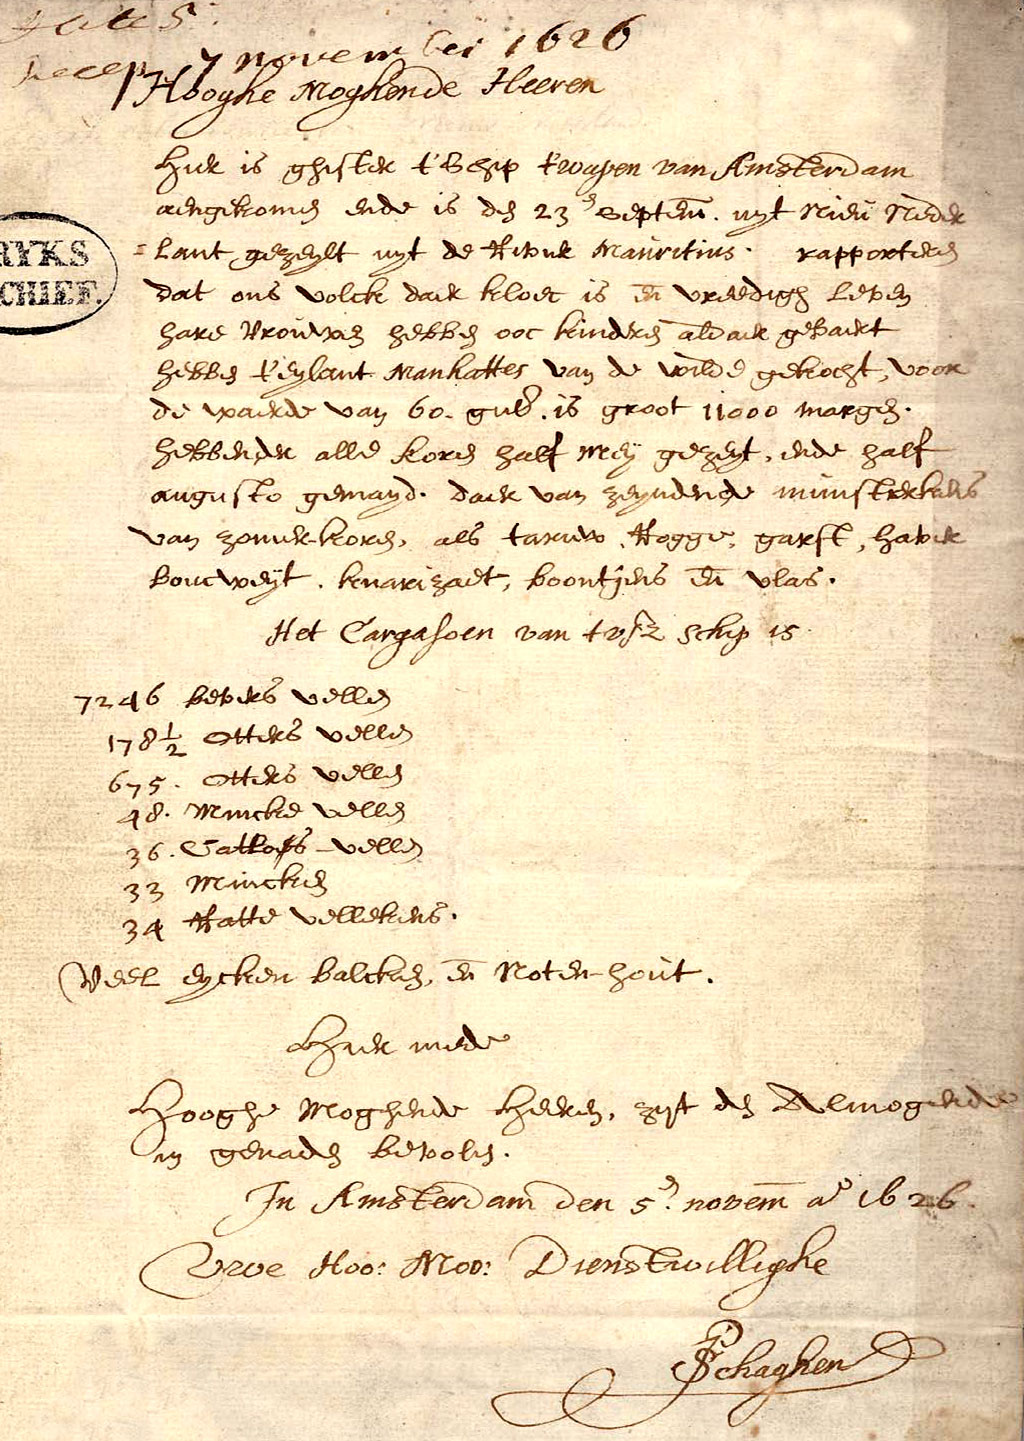 Recep 7 november 1626
Hooghe Moghende Heeren
Hier is ghister t'Schip t'wapen van Amsterdam
aengekomen ende is den 23en septem. uyt Nieu Neder
=Lant gezeylt uyt de Rivier Mauritius. rapporteren
dat ons volck daer kloec is en vreedigh Leven
hare Vrouwen hebben ooc kinderen aldaer gebaert
hebben t'eylant Manhattes van de wilde gekocht, voor
de waerde van 60. guld. is groot 11000 margen.
hebbender alle koren half Mey gezeyt, ende half
augusto gemayd. daer van zeyndende munsterkens
van zomer-koren, als tarruw, Rogge, garst, haver
boucweyt, knarizaet, boontjens en vlas.
Het Cargasoen van tvsz Schip is
7246 bevers vellen
178½ Otters vellen
675. Otters vellen
48. Mincke vellen
36. Catloes vellen
33 Mincken
34 Ratte vellekens.
Veel eycken balcken, en Noten-hout.
Hier mede
Hooghe Moghende Heeren, zyt den Almogende
in genaden bevolen.
In Amsterdam den 5en novem ao 1626.
Uwe Hoo: Moo: Dienstwillighe
P Schaghen
RYKS
CHIEF.